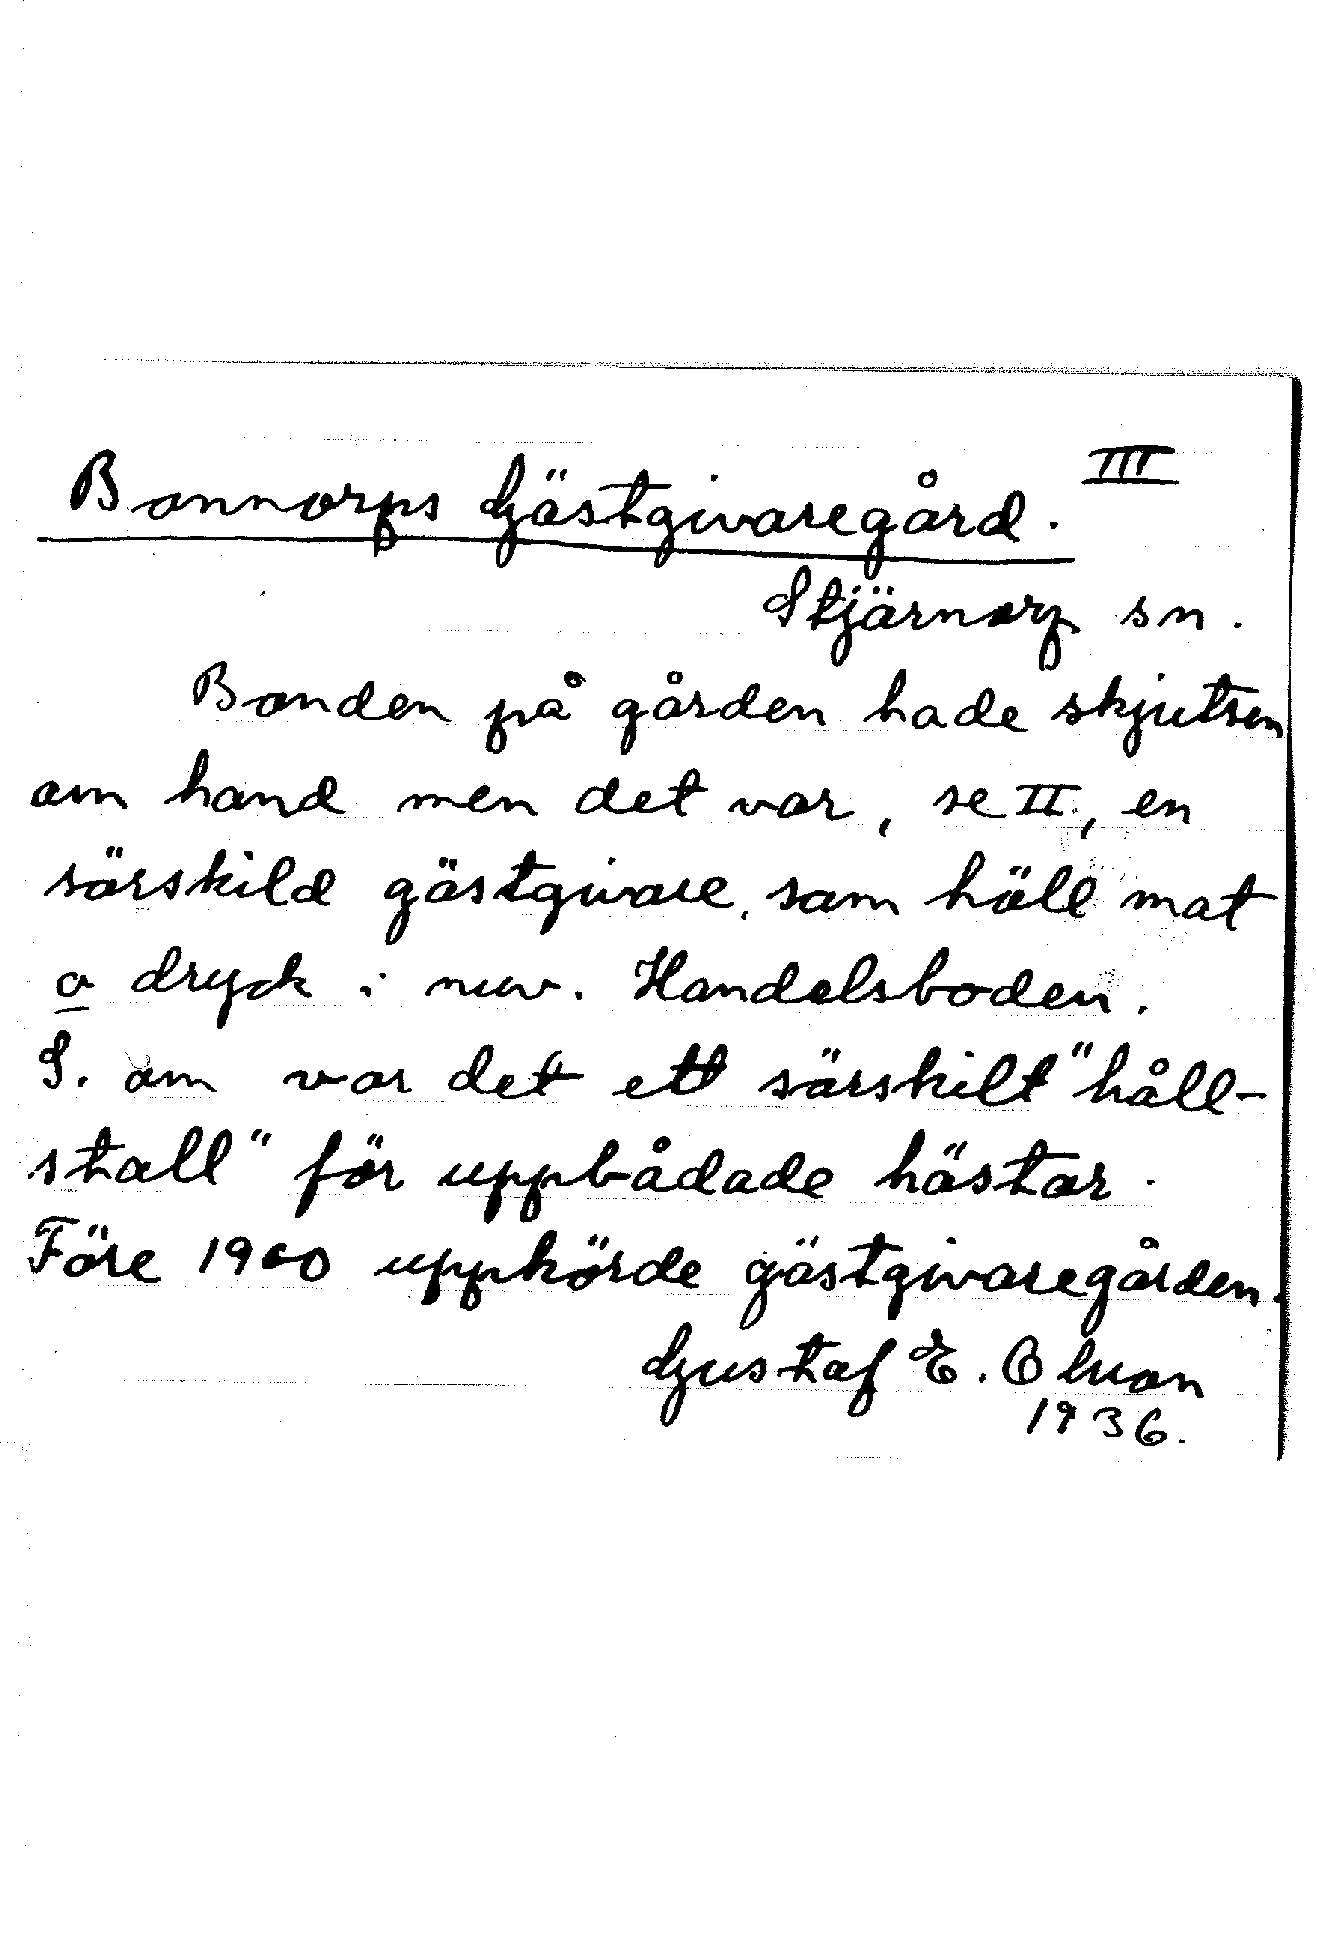 Bonnorps Gästgivaregård. III
Stjärnorp sn.
Bonden på gården hade skjutsen
om hand men det var, se II, en
särskild gästgivare, som höll mat
o dryck i nuv. Handelsboden.
S. om var det ett särskilt "håll-
stall" för uppbådade hästar.
Före 1900 upphörde gästgivaregården.
Gustaf E. Olsson
1936.